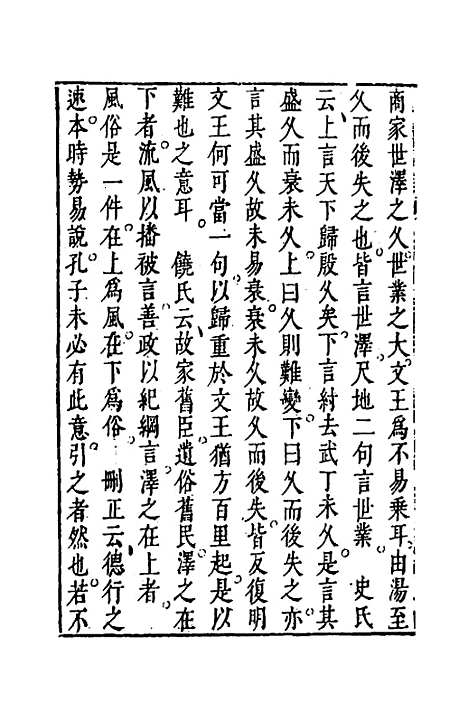 商家世澤之久世業之大文王爲不易乗耳由湯至
久而後失之也皆言世澤尺地二句言世業　史氏
云上言天下歸殷久矣下言紂去武丁未久是言其
盛久而衰未久上曰久則難變下曰久而後失之亦
言其盛久故未易衰衰未久故久而後失皆反復明
文王何可當一句以歸重於文王猶方百里起是以
難也之意耳　饒氏云故家舊臣遺俗舊民澤之在
下者流風以播被言善政以紀綱言澤之在上者
風俗是一件在上爲風在下爲俗　刪正云德行之
速本時勢易說孔子未必有此意引之者然也若不